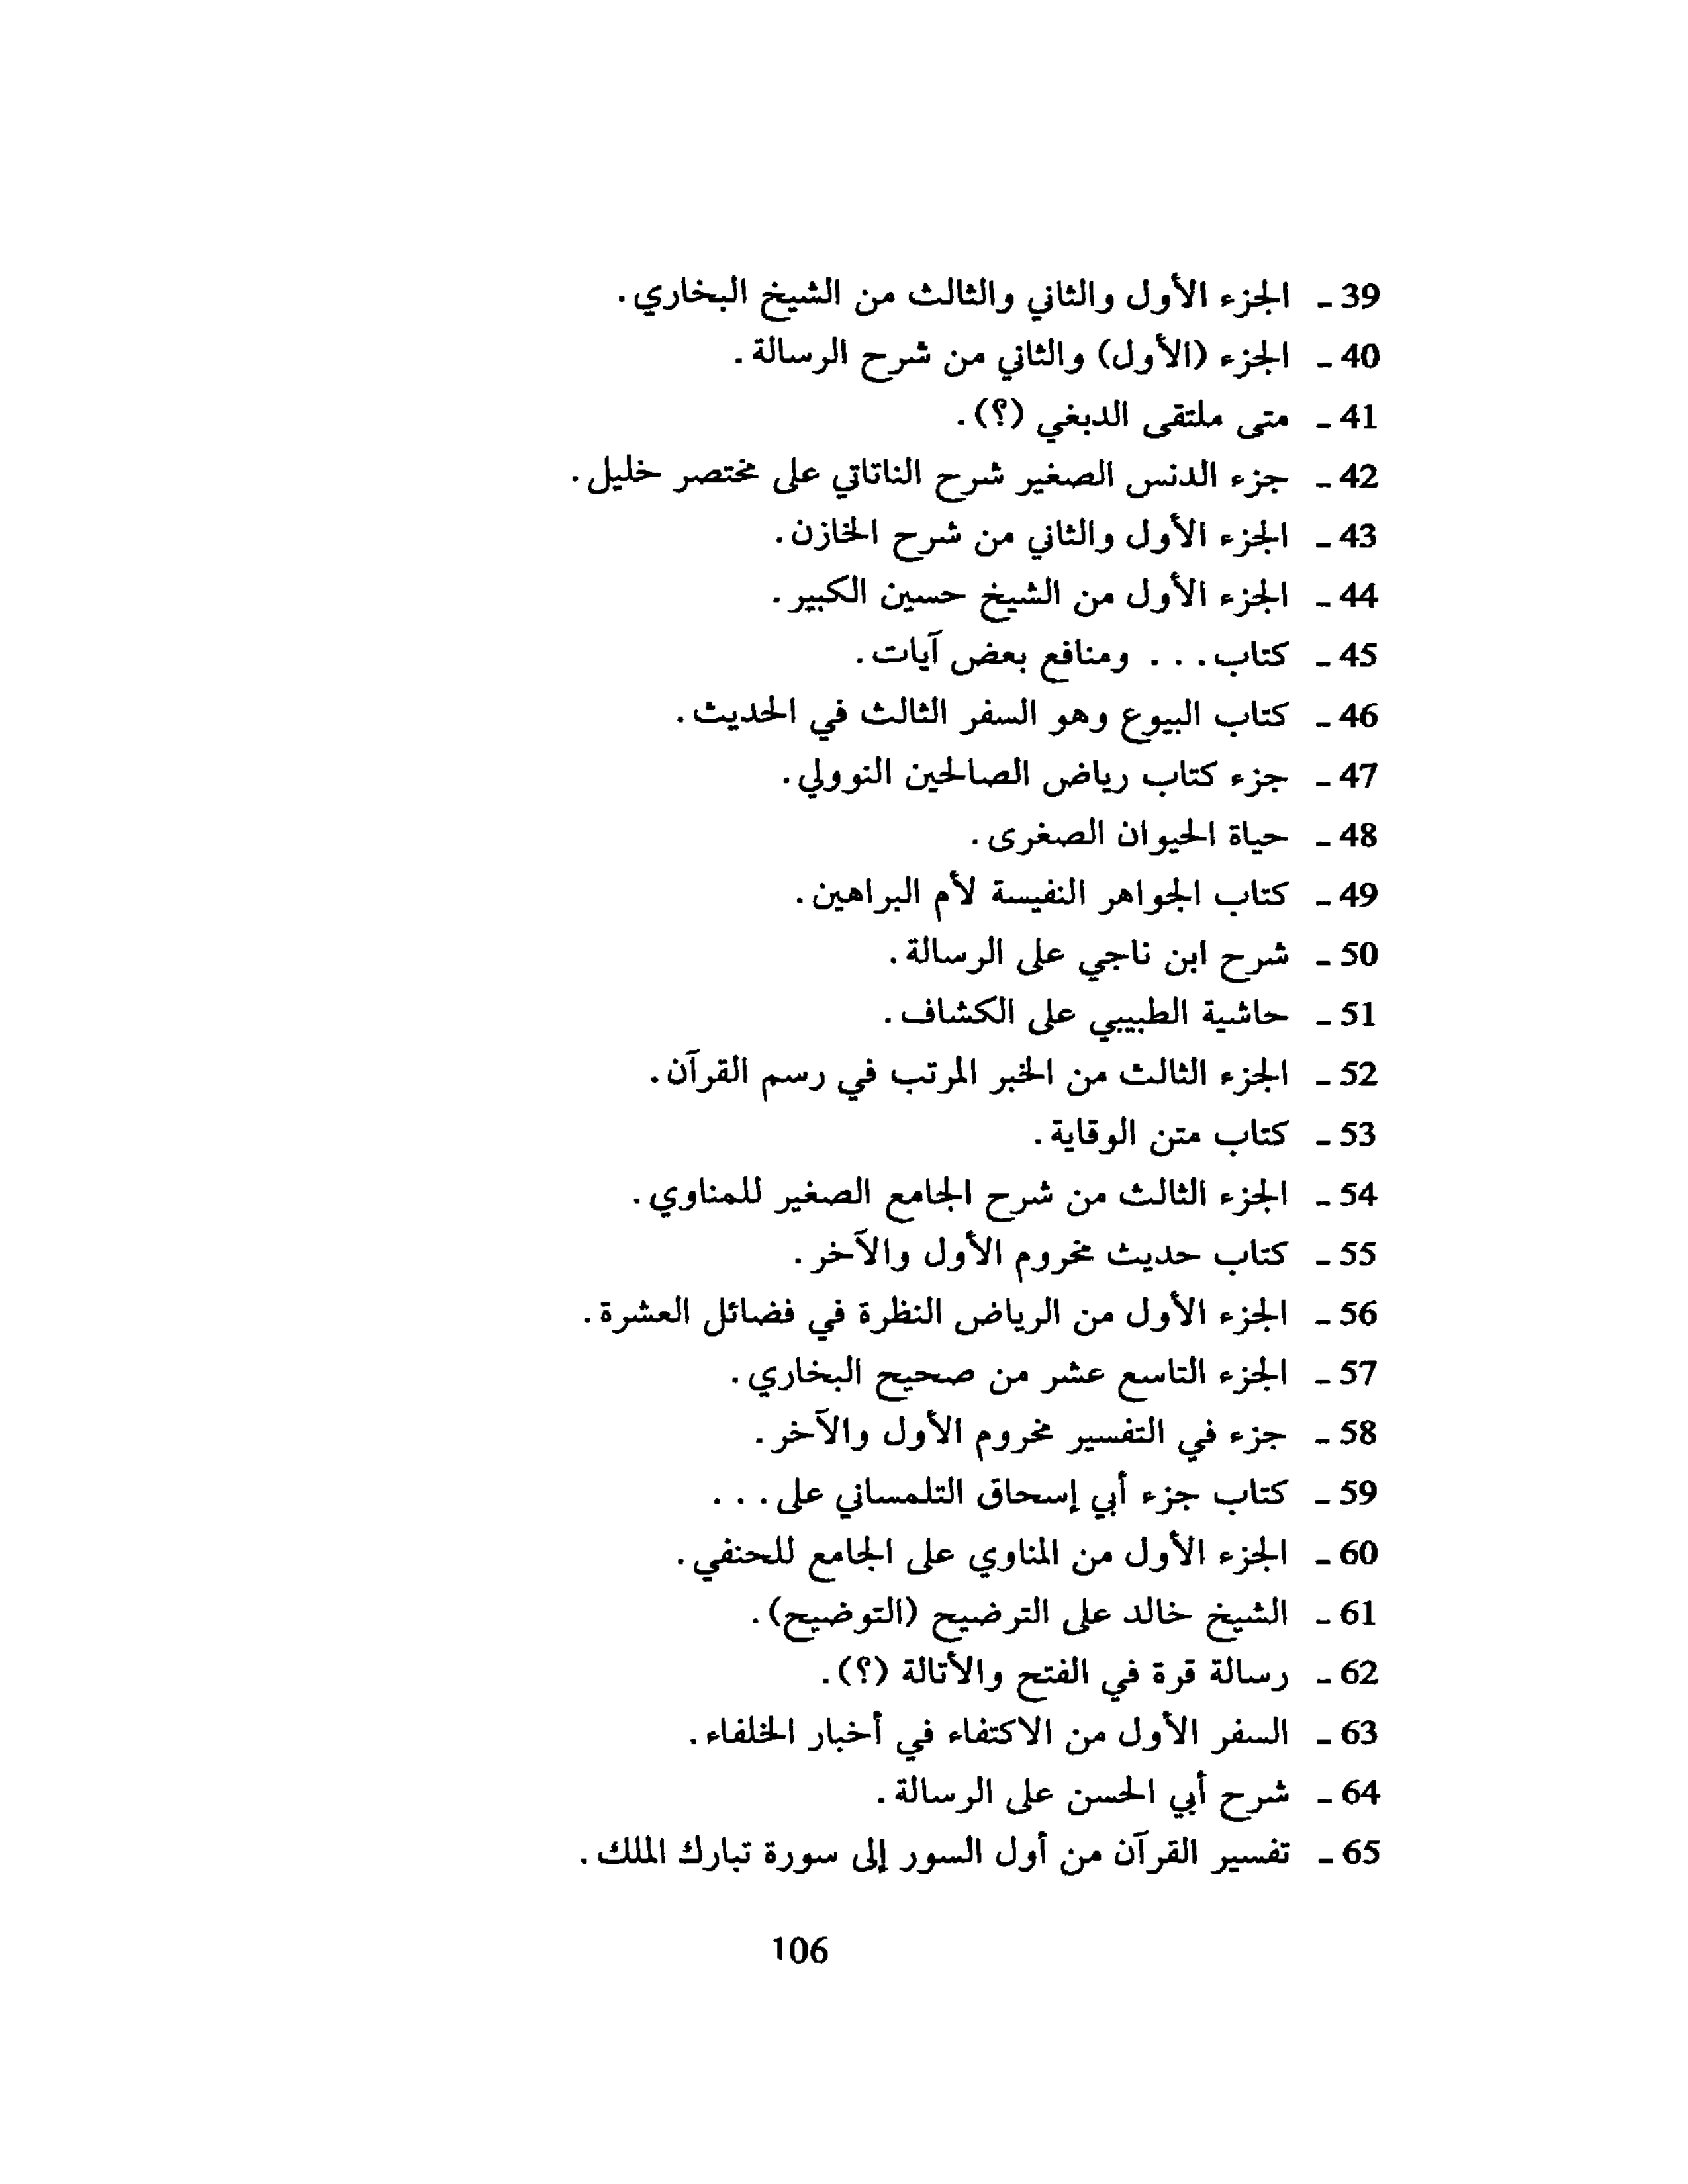 39 ـ الجزء الأول والثاني والثالث من الشيخ البخاري.
40 ـ الجزء (الأول) والثاني من شرح الرسالة.
41 ـ متى ملتقى الدبغي (؟).
42 ـ جزء الدنس الصغير شرح الناتاتي على مختصر خليل.
43 ـ الجزء الأول والثاني من شرح الخازن.
44 ـ الجزء الأول من الشيخ حسين الكبير.
45 ـ كتاب. . . ومنافع بعض آيات.
46 ـ كتاب البيوع وهو السفر الثالث في الحديث.
47 ـ جزء كتاب رياض الصالحين النوولي.
48 ـ حياة الحيوان الصغرى.
49 ـ كتاب الجواهر النفيسة لأم البراهين.
50 ـ شرح ابن ناجي على الرسالة.
51 ـ حاشية الطبيبي على الكشاف.
52 ـ الجزء الثالث من الخبر المرتب في رسم القرآن.
53 ـ كتاب متن الوقاية.
54 ـ الجزء الثالث من شرح الجامع الصغير للمناوي.
55 ـ كتاب حديث مخروم الأول والآخر.
56 ـ الجزء الأول من الرياض النظرة في فضائل العشرة.
57 ـ الجزء التاسع عشر من صحيح البخاري.
58 ـ جزء في التفسير مخروم الأول والآخر.
59 ـ كتاب جزء أبي إسحاق التلمساني على. . .
60 ـ الجزء الأول من المناوي على الجامع للحنفي.
61 ـ الشيخ خالد على الترضيح (التوضيح).
62 ـ رسالة قرة في الفتح والأتالة (؟).
63 ـ السفر الأول من الاكتفاء في أخبار الخلفاء.
64 ـ شرح أبي الحسن على الرسالة.
65 ـ تفسير القرآن من أول السور إلى سورة تبارك الملك.
106